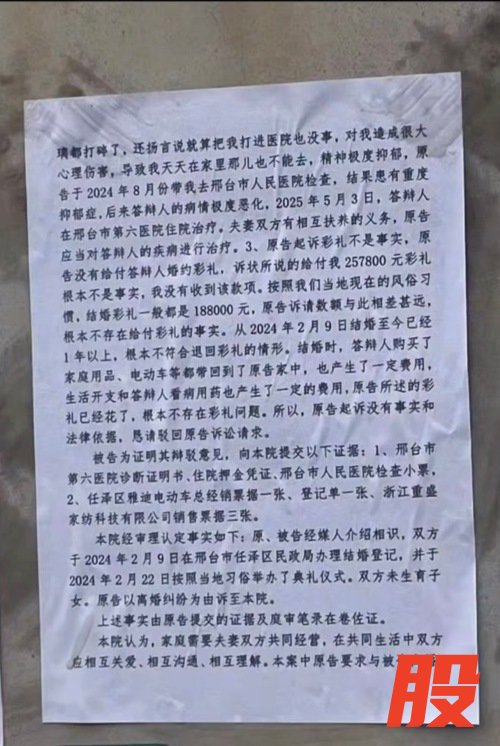 璃都打碎了，还扬言说就算把我打进医院也没事，对我造成很大
心理伤害，导致我天天在家里那儿也不能去，精神极度抑郁，原
告于2024年8月份带我去邢台市人民医院检查，结果患有重度
抑郁症，后来答辩人的病情极度恶化，2025年5月3日，答辩人
在邢台市第六医院住院治疗。夫妻双方有相互扶养的义务，原告
应当对答辩人的疾病进行治疗。3、原告起诉彩礼不是事实，原
告没有给付答辩人婚约彩礼，诉状所说的给付我257800元彩礼
根本不是事实，我没有收到该款项。按照我们当地现在的风俗习
惯，结婚彩礼一般都是188000元，原告请数额与此相差甚远，
根本不存在给付彩礼的事实。从2024年2月9日结婚至今已经
1年以上，根本不符合退回彩礼的情形。结婚时，答辩人购买了
家庭用品、电动车等都带回到了原告家中，也产生了一定费用，
生活开支和答辩人看病用药也产生了一定的费用，原告所述的彩
礼已经花了，根本不存在彩礼问题。所以，原告起诉没有事实和
法律依据，恳请驳回原告诉讼请求。
被告为证明其辩驳意见，向本院提交以下证据：1、邢台市
第六医院诊断证明书、住院押金凭证、邢台市人民医院检查小票，
2、任泽区雅迪电动车总经销票据一张、登记单一张、浙江重盛
家纺科技有限公司销售票据三张。
本院经审理认定事实如下：原、被告经媒人介绍相识，双方
于2024年2月9日在邢台市任泽区民政局办理结婚登记，并于
2024年2月22日按照当地习俗举办了典礼仪式。双方未生育子
女。原告以离婚纠纷为由诉至本院。
上述事实由原告提交的证据及庭审笔录在卷佐证。
本院认为，家庭需要夫妻双方共同经营，在共同生活中双方
应相互关爱、相互沟通、相互理解。本案中原告要求与被
股